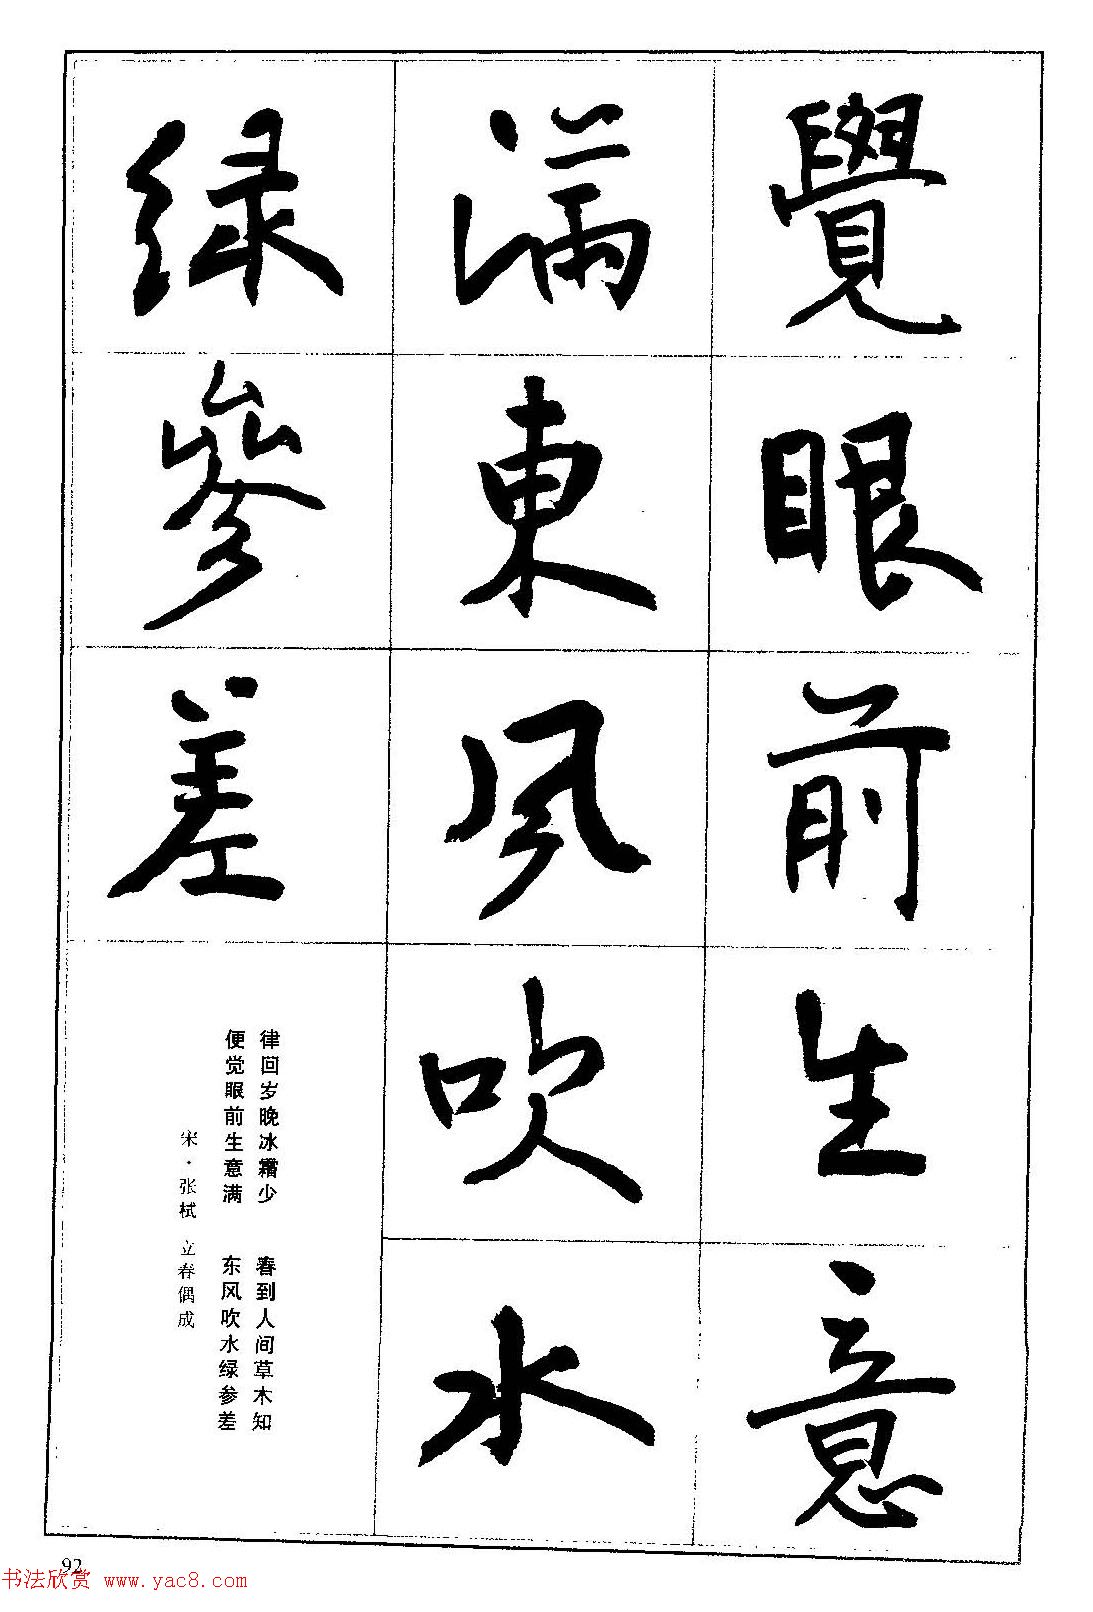 覺眼前生意
满東風吹水
绿參差
律回岁晚冰霜少 春到人间草木知
便觉眼前生意满 东风吹水绿参差
宋·张栻 立春偶成
92
书法欣赏 www.yac8.com